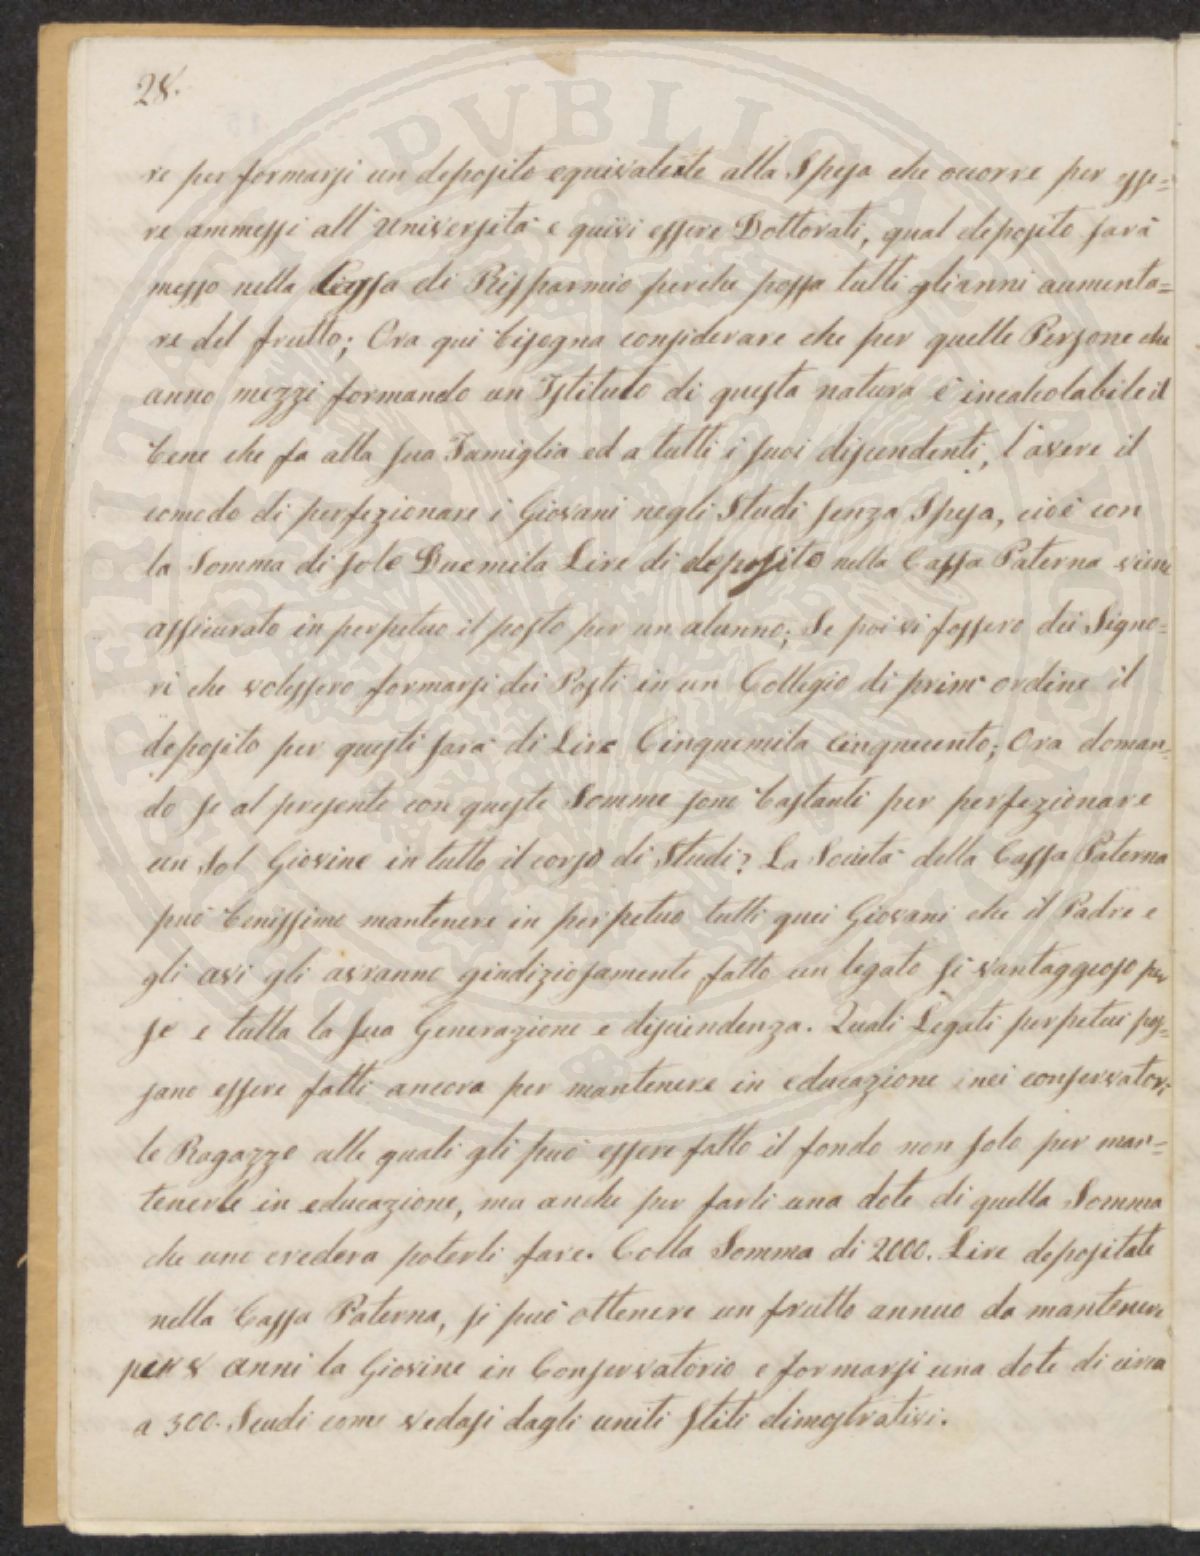 28.
re per formarsi un deposito equivalente alla Spesa che ocorre per esse=
re ammessi all'Università e quivi essere Dottorati, qual deposito sarà
messo nella Cassa di Risparmio perche possa tutti gli anni aumenta=
re del frutto; Ora qui bisogna considerare che per quelle Persone che
anno mezzi formando un Istituto di questa natura è incalcolabile il
bene che fa alla sua Famiglia ed a tutti i suoi discendenti, l'avere il
comodo di perfezionare i Giovani negli Studi senza Spesa, cioè con
la Somma di sole Duemila Lire di deposito nella Cassa Paterna viene
assicurato in perpetuo il posto per un alunno; Se poi vi fossero dei Signo=
ri che volessero formarsi dei Posti in un Collegio di primo ordine il
deposito per questi sarà di Lire Cinquemila cinquecento; Ora doman=
do se al presente con queste Somme sono bastanti per perfezionare
un Sol Giovine in tutto il corso di Studi? La Società della Cassa Paterna
può benissimo mantenere in perpetuo tutti quei Giovani che il Padre e
gli avi gli avranno giudiziosamente fatto un legato si vantaggioso per
se e tutta la sua Generazione e discendenza. Quali Legati perpetui pos=
sano essere fatti ancora per mantenere in educazione nei conservatori
le Ragazze alle quali gli può essere fatto il fondo non solo per man=
tenerle in educazione, ma anche per farli una dote di quella Somma
che uno credera poterli fare. Colla Somma di 2000. Lire depositate
nella Cassa Paterna, si può ottenere un frutto annuo da mantenere
per 8 anni la Giovine in Conservatorio e formarsi una dote di circa
a 300. Scudi come vedasi dagli uniti Stati dimostrativi.